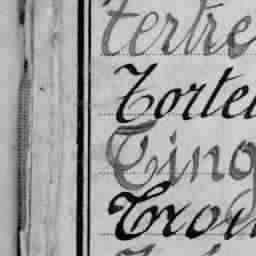 Tertre
Torte
Ting
Trou